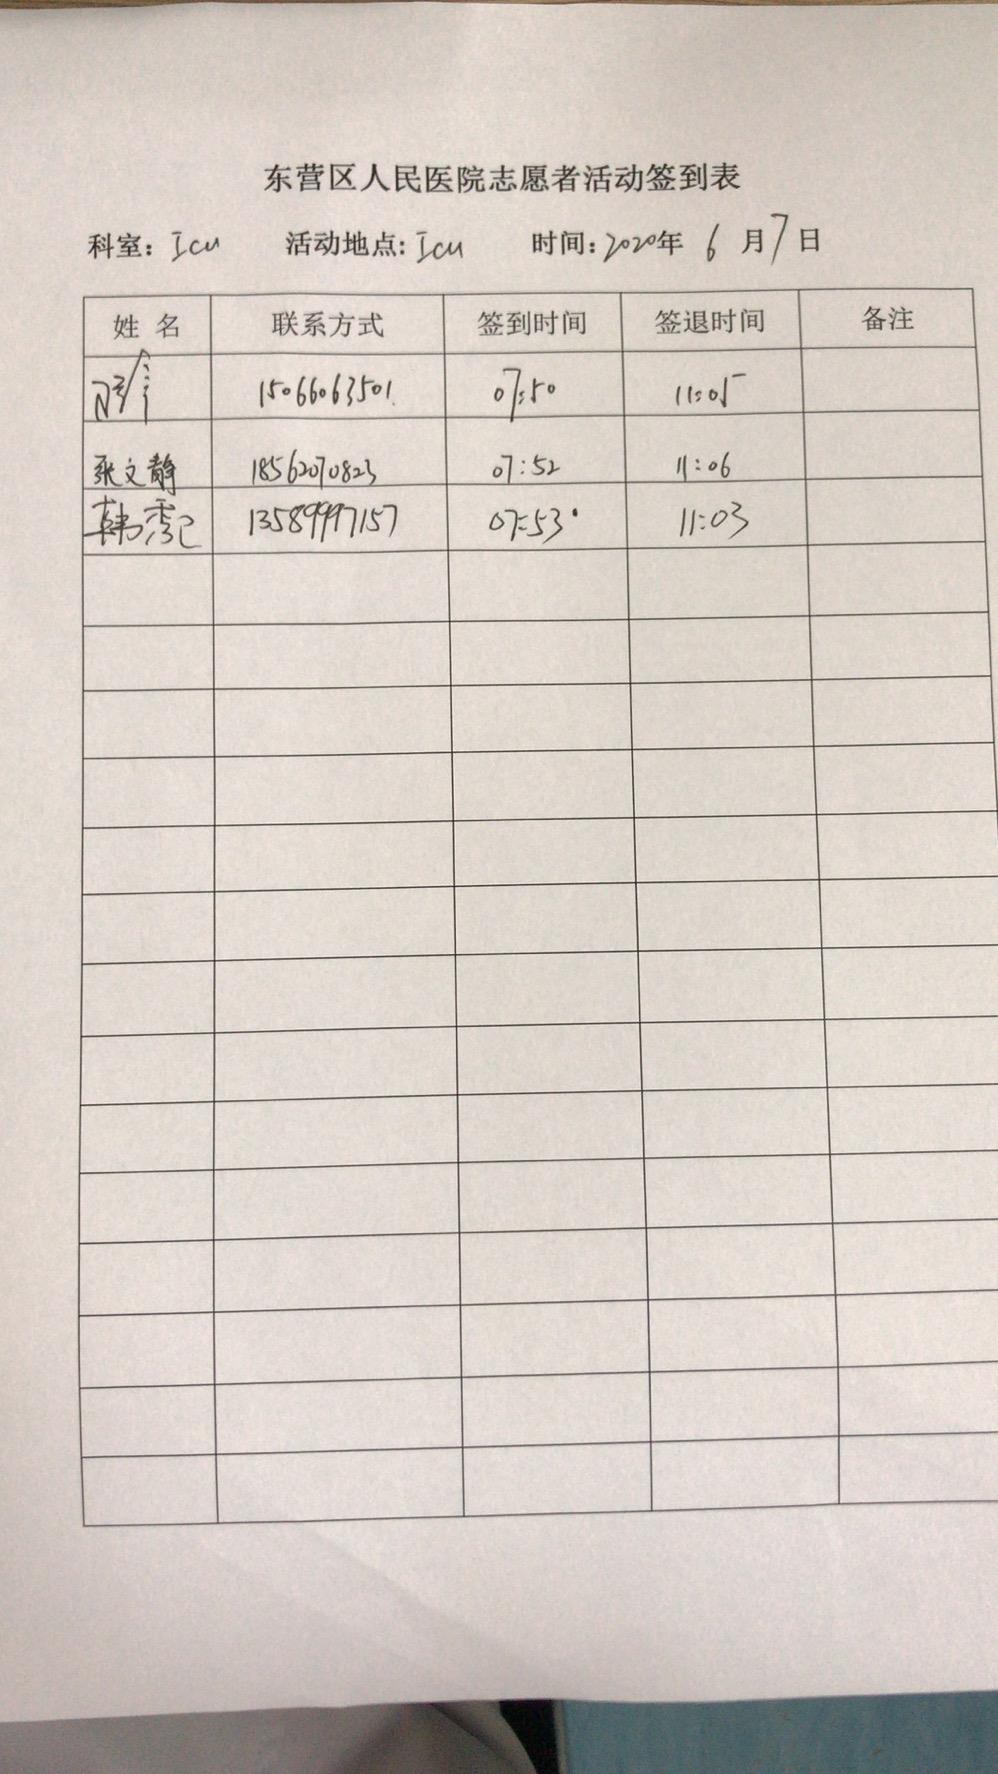 东营区人民医院志愿者活动签到表
科室: Icu 活动地点: Icu 时间: 2020年 6 月 7 日
姓 名 联系方式 签到时间 签退时间 备注
15066063501 07:50 11:05
张文静 18562070823 07:52 11:06
韩秀 13589997157 07:53 11:03